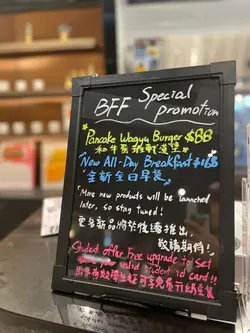 BFF Special
promotion
Pancake Wagyu Burger $88
和牛班戟漢堡
New All-Day Breakfast $168
全新全日早餐
"More new products will be launched
later, so stay tuned!
更多新品將於後續推出,
敬請期待!"
Student offer Free upgrade to set
valid student id card!!
出示有效學生證可享免費升級套餐